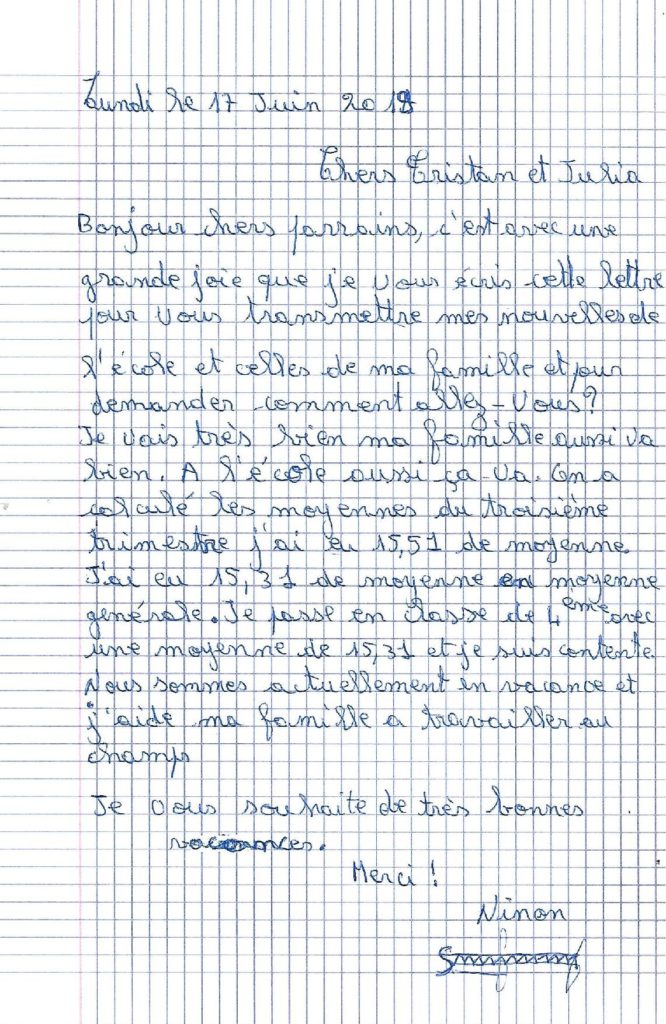 Lundi le 17 Juin 2019
Chers Tristan et Julia
Bonjour chers parrains, c'est avec une
grande joie que je vous écris cette lettre
pour vous transmettre mes nouvelles de
l'école et celles de ma famille et pour
demander comment allez-vous?
Je vais très bien ma famille aussi va
bien. A l'école aussi ça-va. On a
calculé les moyennes du troisième
trimestre j'ai eu 15,51 de moyenne.
J'ai eu 15,31 de moyenne en moyenne
générale. Je passe en classe de 4ème avec
une moyenne de 15,31 et je suis contente.
Nous sommes actuellement en vacance et
j'aide ma famille a travailler au
champs
Je vous souhaite de très bonnes
vacances.
Merci !
Ninon